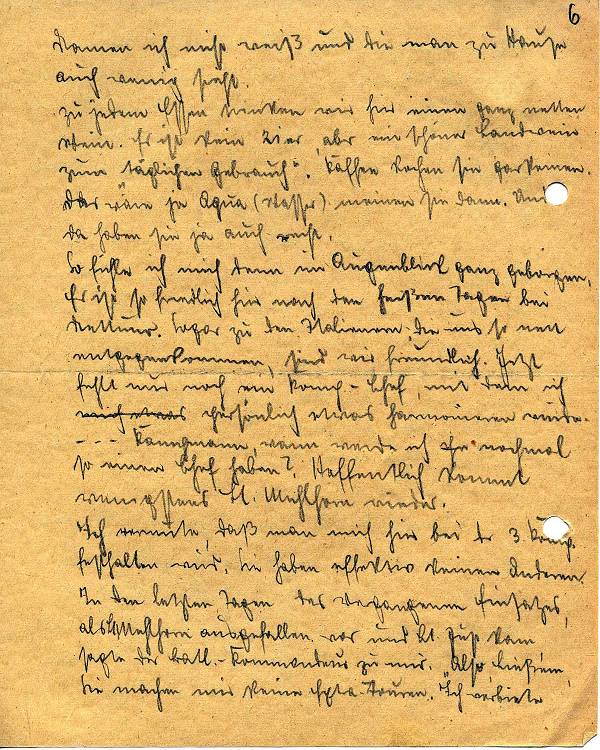 6
Namen ich nicht weiß und die man zu Hause
auch wenig sieht.
Zu jedem Essen trinken wir hier einen ganz netten
Wein. Er ist kein Bier, aber ein schöner Landwein
zum täglichen Gebrauch". Kaffee kochen sie gar keinen.
Das wäre ja Aqua (Wasser) meinen sie dann. Und
da haben sie ja auch recht.
So fühle ich mich denn im Augenblick ganz geborgen.
Es ist so friedlich hier nach den heißen Tagen bei
Nettuno. Sogar zu den Italienern, die uns so nett
entgegenkommen, sind wir freundlich. Jetzt
fehlt nur noch ein Komp-Chef, mit dem ich
mich etwas persönlich etwas harmonieren würde.
--- Kamgmann, wann werde ich nochmal
so einen Chef haben? Hoffentlich kommt
wenigstens Lt. Mehlhorn wieder.
Ich vermute, daß man mich hier bei der 3. Komp.
festhalten wird. Sie haben effektiv keinen Anderen.
In den letzten Tagen des vergangenen Einsatzes,
als Lt Mehlhorn ausgefallen war und Lt. Jup kam
sagte der Batl.-Kommandeur zu mir. "Also
Sie machen mir keine Exta-Touren. Ich verbiete